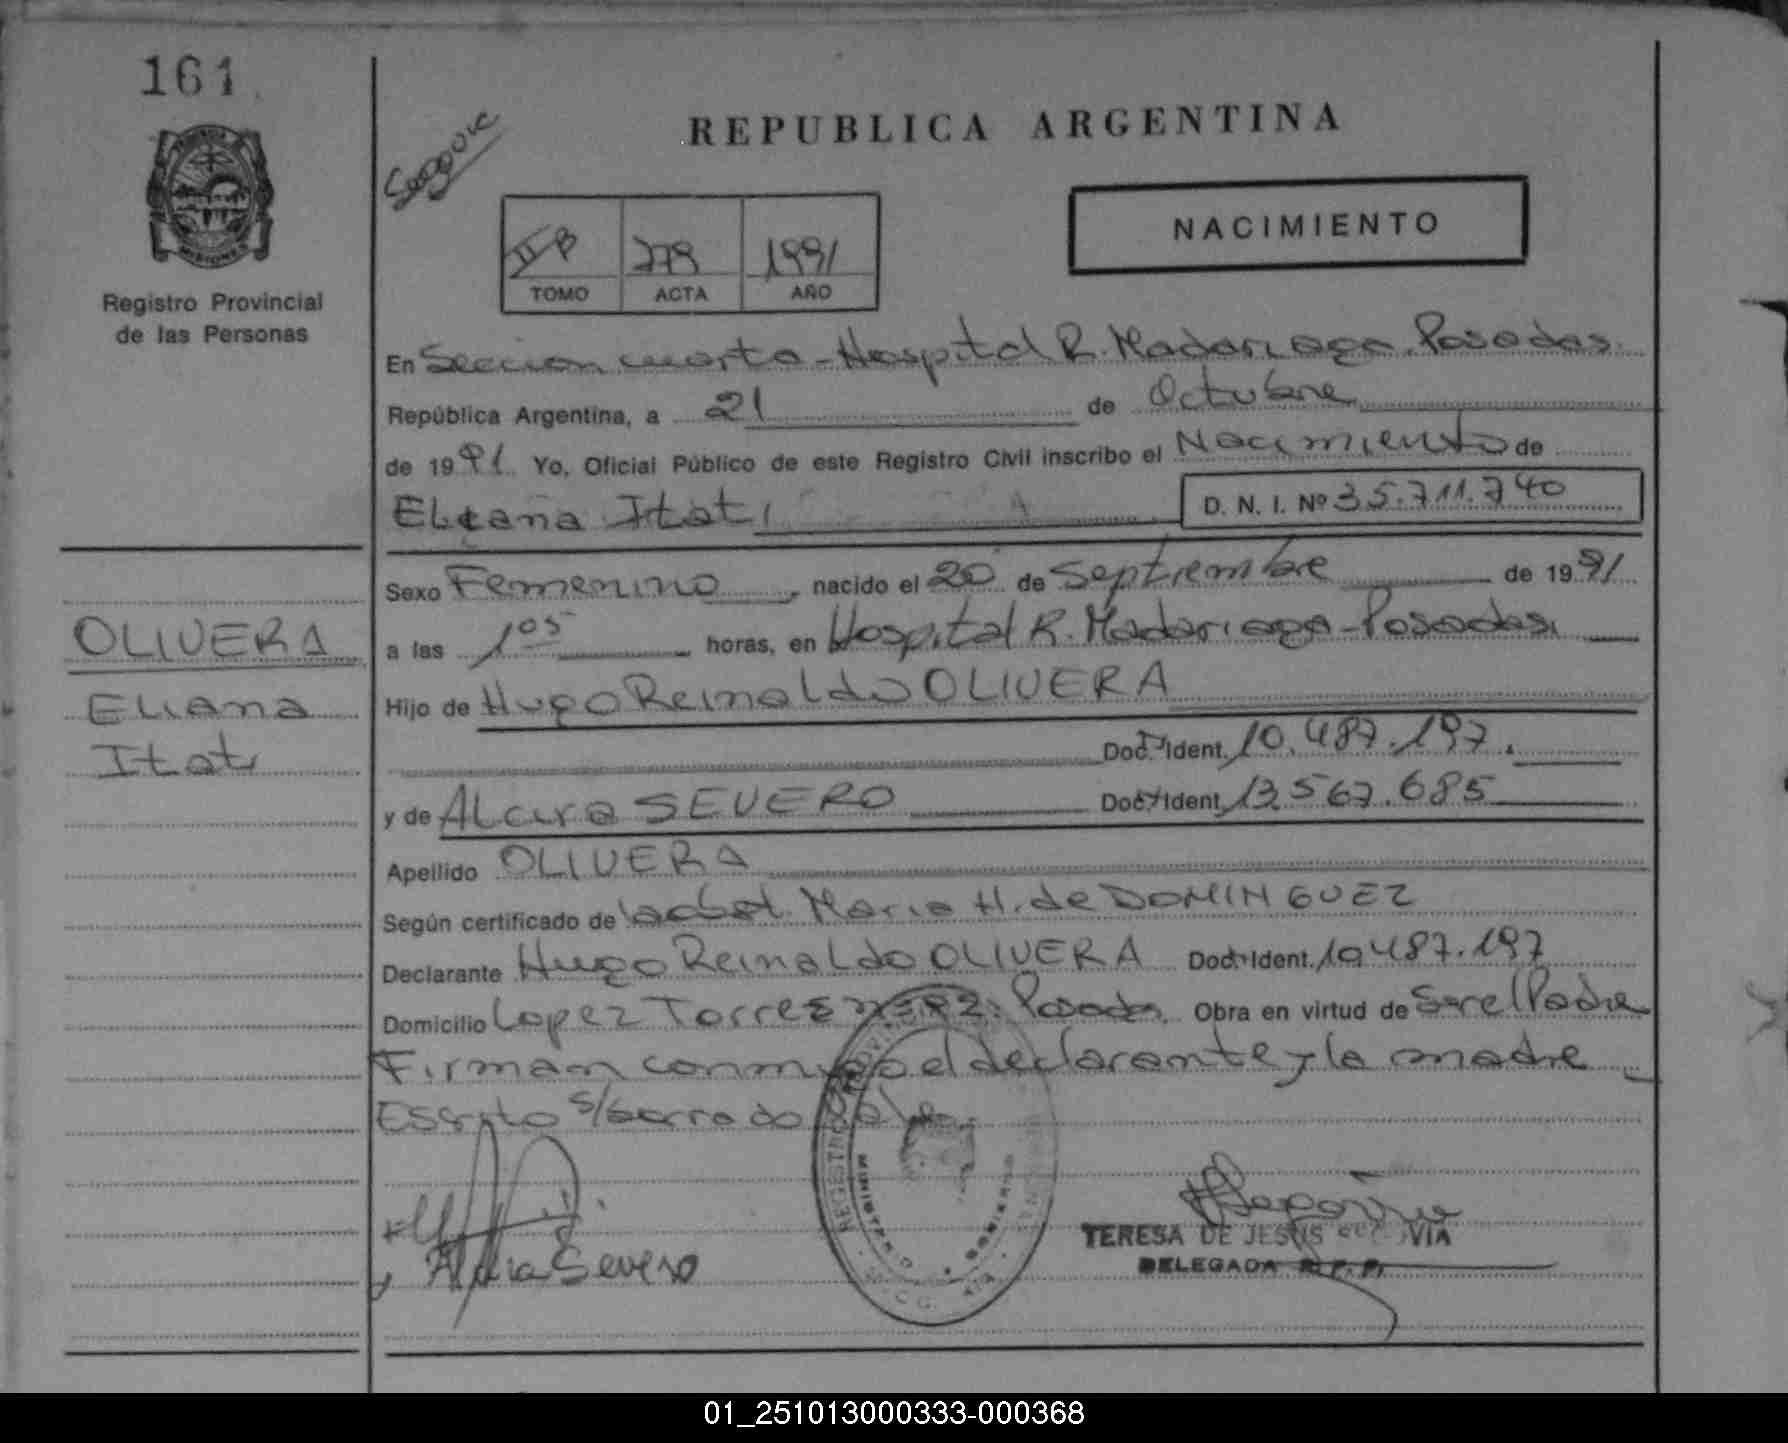 161
Segovia
REPUBLICA ARGENTINA
NACIMIENTO
II B 279 1991
TOMO ACTA AÑO
PROVINCIA MISIONES
Registro Provincial
de las Personas
En Seccion cuarta - Hospital R. Madariaga. Posadas.
República Argentina, a 21 de Octubre
de 1991 Yo, Oficial Público de este Registro Civil inscribo el Nacimiento de
Eliana Itati D. N. I. Nº 35.711.740
Sexo Femenino, nacido el 20 de Septiembre de 1991
a las 1 05 horas, en Hospital R. Madariaga - Posadas.
Hijo de Hugo Reinaldo OLIVERA
Doc. Ident. 10.487.197.
y de Alcira SEVERO Doc. Ident. 13.567.685
Apellido OLIVERA
Según certificado de obst. Maria H. de DOMINGUEZ
Declarante Hugo Reinaldo OLIVERA Doc. Ident. 10.487.197
Domicilio Lopez Torres Posadas. Obra en virtud de Ser el Padre
Firman conmigo el declarante y la madre
Escrito s/borrado
OLIVERA
Eliana
Itati
Severo
REGISTRO MINISTERIO GOBIERNO
TERESA DE JESUS SEGOVIA
DELEGADA R. P. P.
01_251013000333-000368